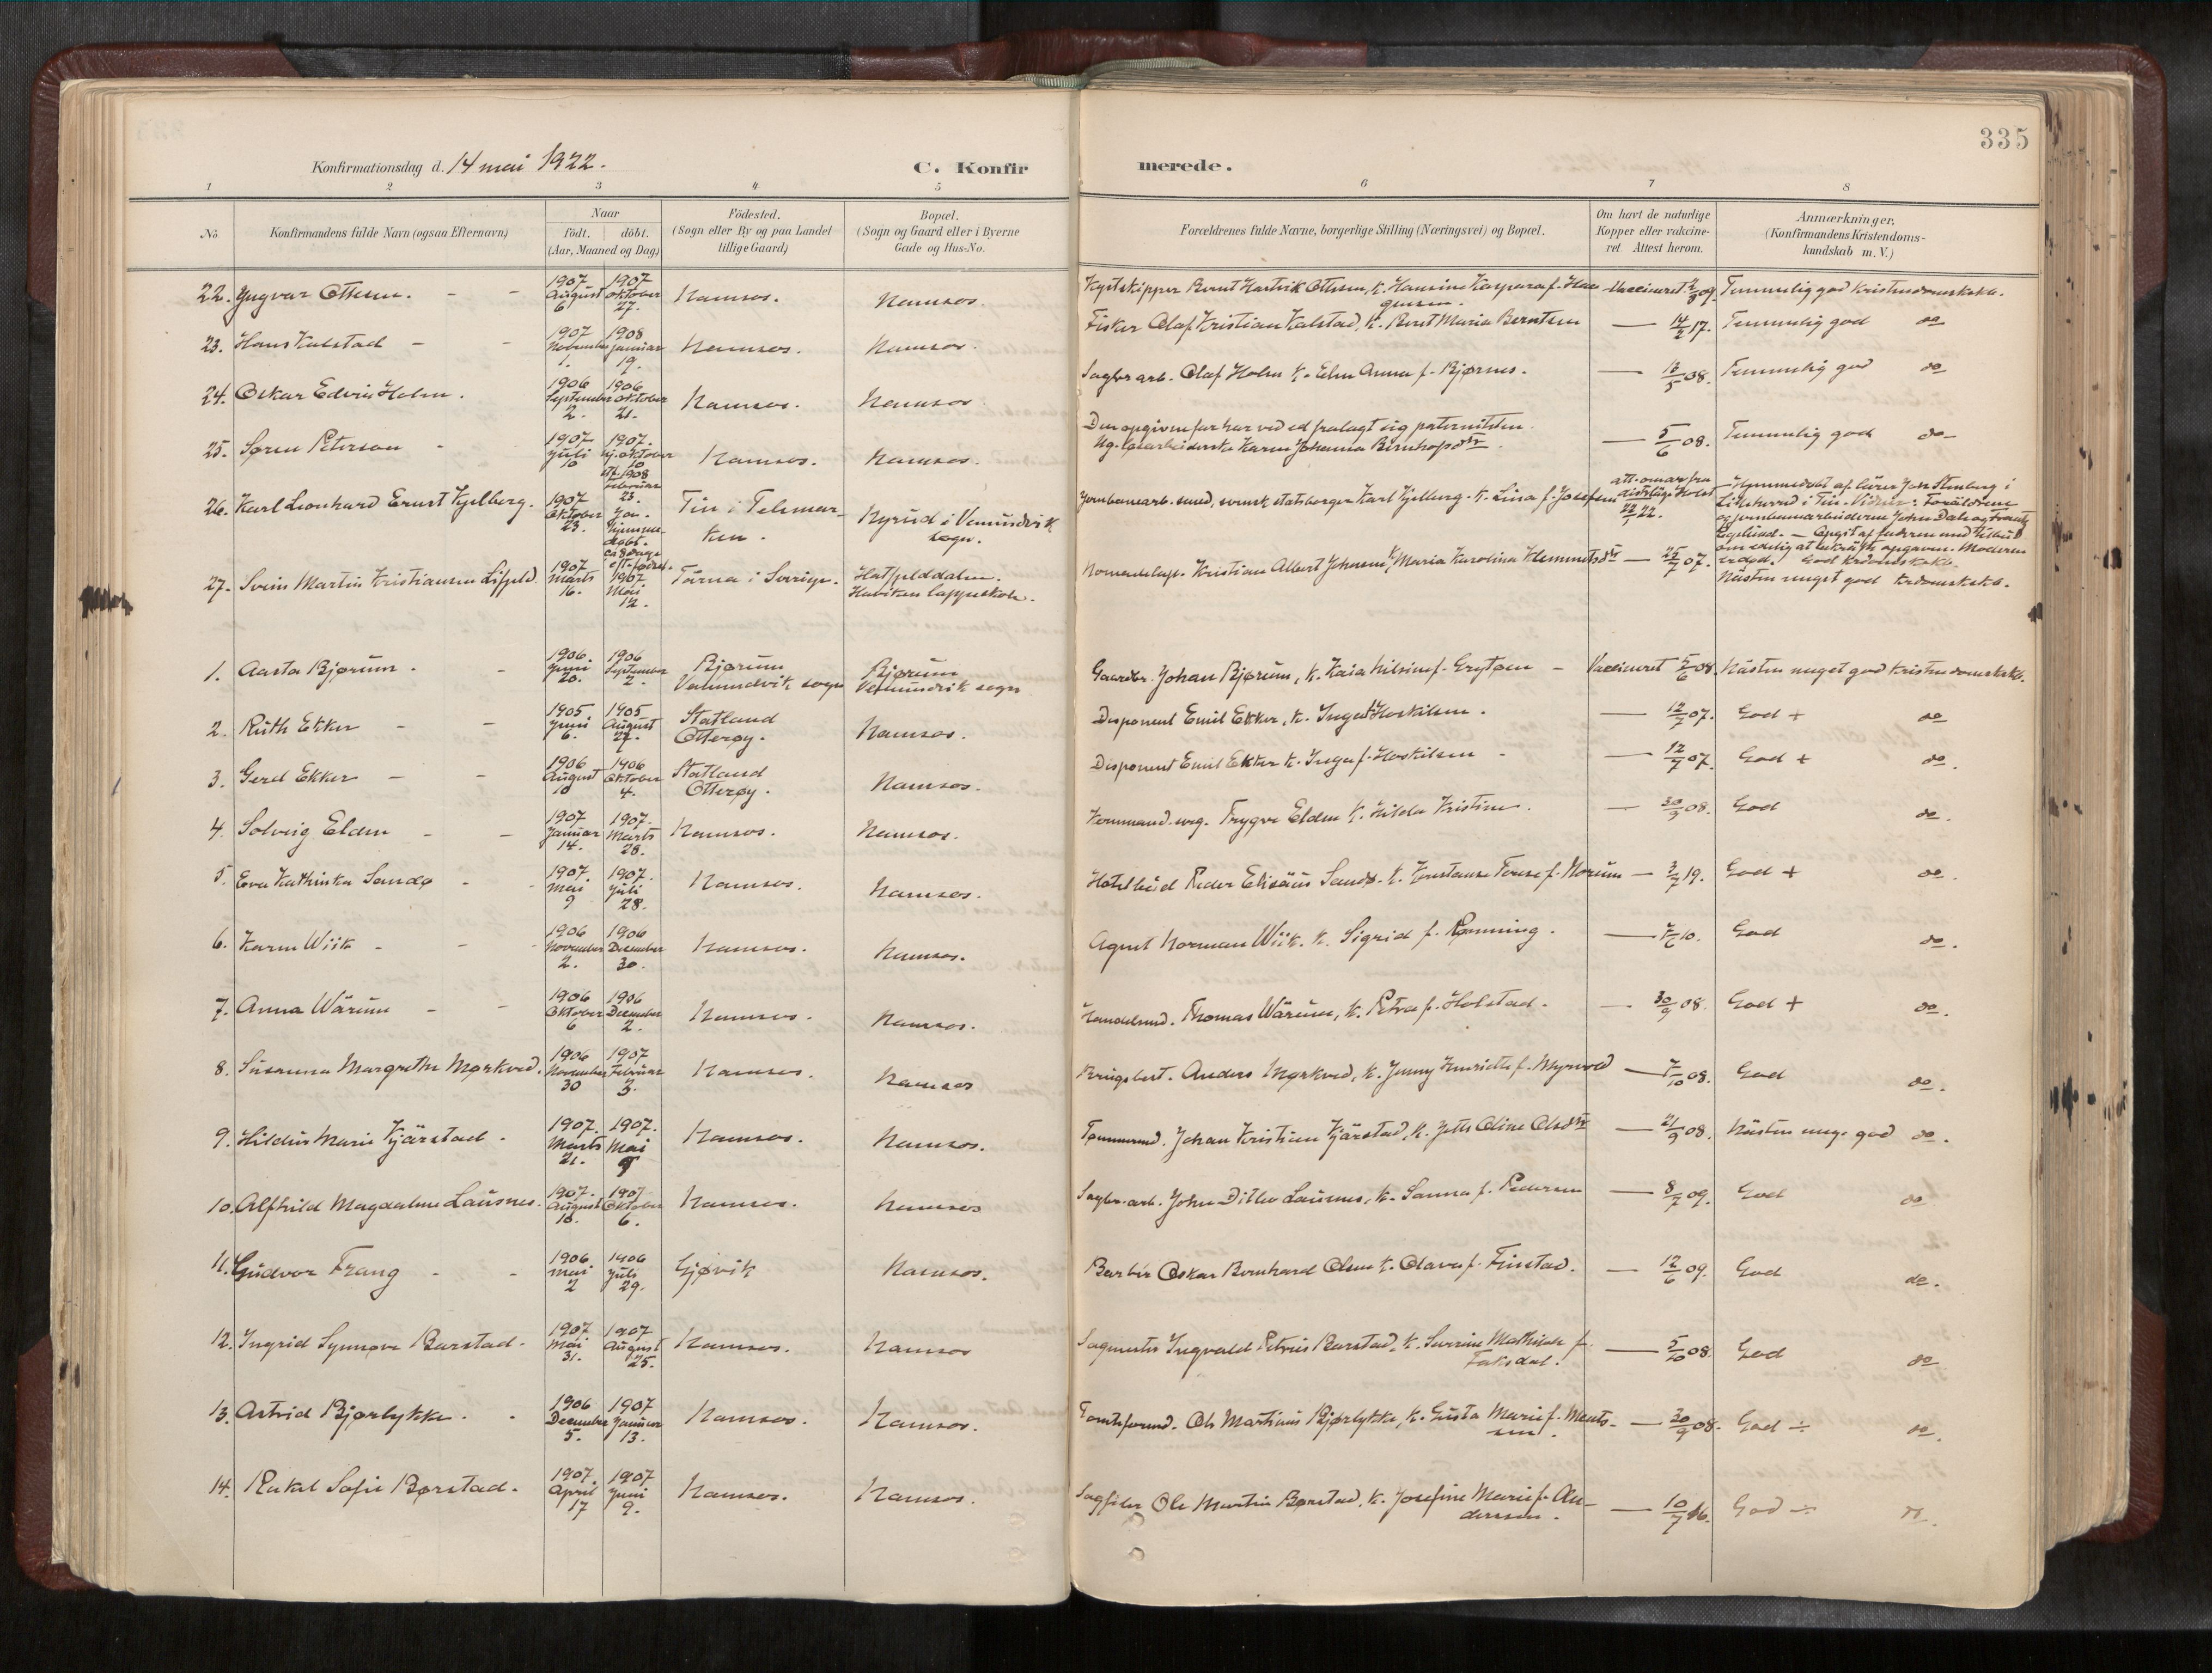 335
Konfirmationsdag d. 14 mai 1922.
C. Konfirmerede.
1 2 3 4 5 6 7 8
No.
Konfirmandens fulde Navn (ogsaa Efternavn)
Naar
født. døbt.
(Aar, Maaned og Dag)
Fødested.
(Sogn eller By og paa Landet
tillige Gaard)
Bopæl.
(Sogn og Gaard eller i Byerne
Gade og Hus-No.
Forældrenes fulde Navne, borgerlige Stilling (Næringsvei) og Bopæl.
Om havt de naturlige
Kopper eller vakcine-
ret. Attest herom.
Anmærkninger.
(Konfirmandens Kristendoms-
kundskab m. V.)
22. Yngvar Ottesen. 1907 August 6 1907 Oktober 27. Namsos. Namsos. Temmelig god Kristendomskskb.
23. Hans Kalstad 1907 November 1. 1908 Januar 19. Namsos. Namsos. Fisker Olaf Kristian Kalstad, K. Beret Maria Berntsen 14/2 17. Temmelig god do
24. Oskar Edvin Holm. 1906 September 2. 1906 Oktober 21. Namsos. Namsos. Sagbr.arb. Olaf Holm K. Elen Anna f. Bjørnes. 16/5 08. Temmelig god do
25. Søren Peterson 1907 Juli 10 1907. hj. Oktober 10 1908 Februar 23. Namsos. Namsos. Den opgivne far har ved ed fralagt sig paterniteten. Karen Johanna 5/6 08. Temmelig god do
26. Karl Leonhard Ernst Kjelberg. 1907 Oktober 23. Tin i Telemarken. Vemundvik sogn. svensk statsborger Karl Kjelberg. K. Lina f. Josefsen 22/1 22. God
27. Svein Martin Kristiansen 1907 Marts 16. 1907 Mai 12. Tärna i Sverige. Hatfjelddalen. Havikens lappeskole. Kristian Albert Johnsen K. Maria Karolina Klemmetsdtr 25/7 07. Nästen meget god krdomskskb.
1. Aasta Bjørum. 1906. Juni 20. 1906 September 2. Bjørum Vemundvik sogn Bjørum Vemundvik sogn Gaardbr. Johan Bjørum, K. Kaia Nilsine f. Vaccineret 5/6 08. Nästen meget god Kristendomskskb.
2. Ruth Ekker 1905 Juni 6. 1905 August 27. Statland Otterøy. Namsos. Disponent Emil Ekker, K. Inga f. Hoskilsen. 12/7 07. God + do
3. Gerd Ekker 1906 August 10 1906 Oktober 4. Statland Otterøy. Namsos. Disponent Emil Ekker K. Inga f. Hoskilsen 12/7 07. God + do.
4. Solveig Elden 1907 Januar 14. 1907. Marts 28. Namsos. Namsos. Trygve Elden K. Hilda Kristine. 30/9 08. God do.
5. Eva Kathinka Sandø 1907. Mai 9 1907. Juli 28. Namsos. Namsos. Peder Elisäus Sandø. K. f. Norum 3/7 19. God + do.
6. Karen Wiik 1906 November 2. 1906 Desember 30. Namsos. Namsos. Agent Norman Wiik. K. Sigrid f. Rønning. God do.
7. Anna Wärum 1906 Oktober 6 1906 Desember 2. Namsos. Namsos. Handelsmd. Thomas Wärum, K. Petra f. Holstad. 30/9 08. God + do.
8. Susanna Margrethe Mørkved. 1906 November 30 1907 Februar 3. Namsos. Namsos Anders Mørkved, K. Jenny Henriette f. Myrvold 7/10 08. God do.
9. Hildur Marie Kjärstad. 1907. Marts 21. 1907. Mai 9 Namsos. Namsos. Tømmermd. Johan Kristian Kjärstad, K. Jette Oline Olsdtr 21/9 08. Nästen meg. god do.
10. Alfhild Magdalene Lausnes. 1907. August 10. 1907 Oktober 6. Namsos. Namsos Sagbr.arb. John Ditlev Lausnes, K. Sanna f. Pedersen 8/7 09. God do
11. Gudvor Frang 1906 Mai 2 1906 Juli 29. Gjøvik Namsos. Barbér Oskar Bernhard Olsen K. Olava f. Finstad. 12/6 09. God do.
12. Ingrid Synnøve Barstad. 1907 Mai 31. 1907 August 25. Namsos. Namsos Sagmester Ingvald Petrus Barstad, K. Severine Mathilde f. Faksdal. 5/10 08. God do
13. Astrid Bjørlykke. 1906 Desember 5. 1907 Januar 13. Namsos. Namsos. Tomteformd. Ole Martinus Bjørlykke, K. Gusta Marie f. Mentsen. 30/9 08. God ÷ do.
14. Rakel Sofie Børstad. 1907 April 17 1907 Juni 9. Namsos. Namsos. Sagfiler Ole Martin Børstad, K. Josefine Marie f. Anderssen. 10/7 16. God ÷ do.